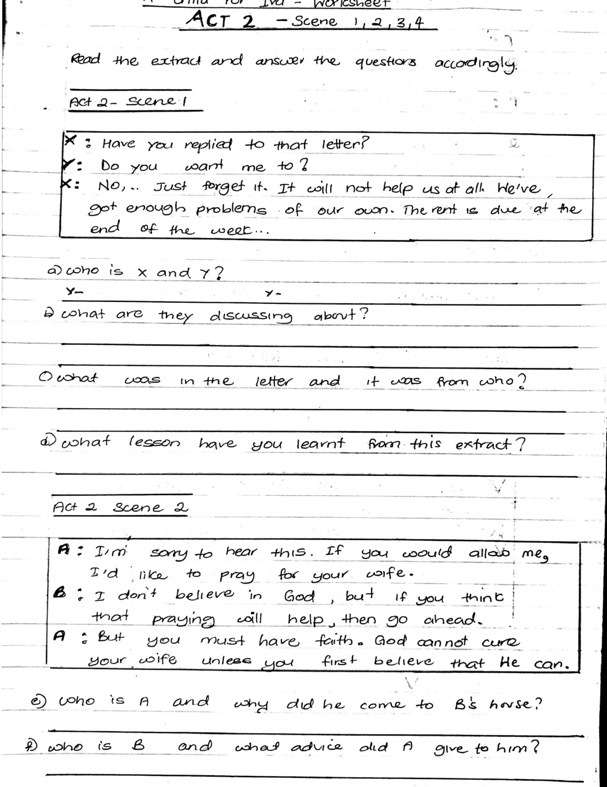 Worksheet
ACT 2 - Scene 1, 2, 3, 4
Read the extract and answer the questions accordingly.
Act 2 - Scene 1
X : Have you replied to that letter?
Y : Do you want me to?
X : No,.. Just forget it. It will not help us at all. We've,
got enough problems of our own. The rent is due at the
end of the week...
a) who is X and Y?
Y- Y-
b) what are they discussing about?
c) what was in the letter and it was from who?
d) what lesson have you learnt from this extract?
Act 2 Scene 2
A : I'm sorry to hear this. If you would allow me,
I'd like to pray for your wife.
B : I don't believe in God, but if you think
that praying will help, then go ahead.
A : But you must have faith. God cannot cure
your wife unless you first believe that He can.
e) who is A and why did he come to B's house?
f) who is B and what advice did A give to him?